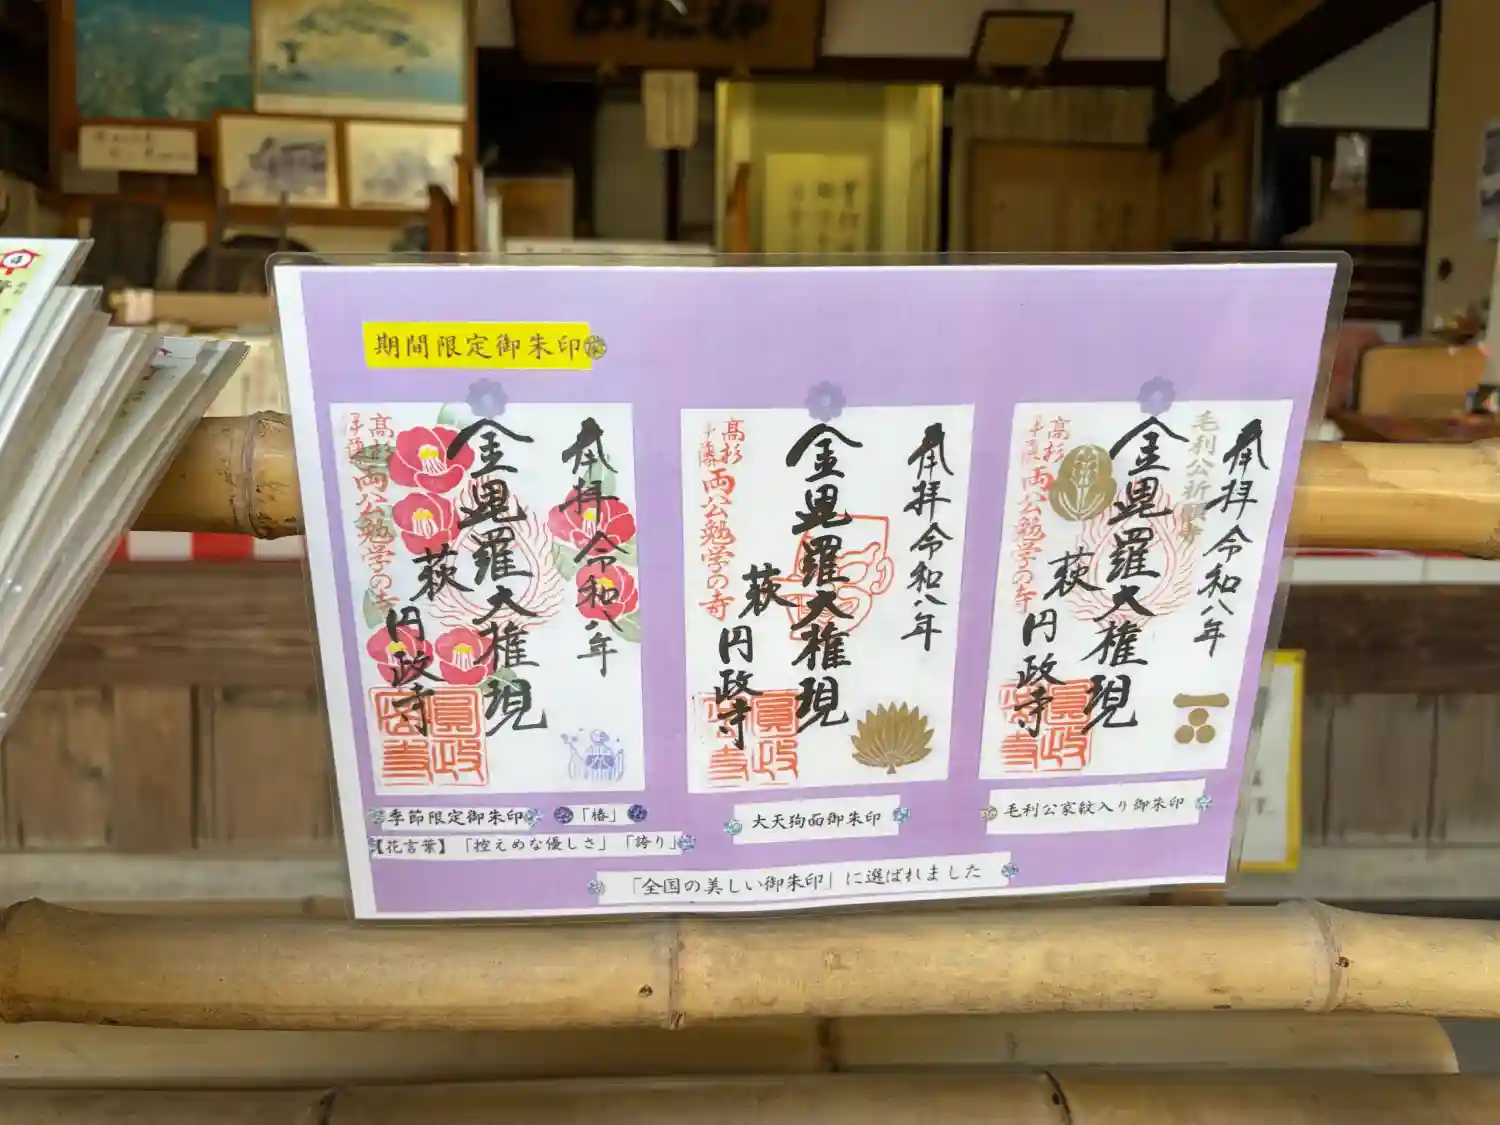 期間限定御朱印
奉拝 令和八年
金毘羅大権現
萩 円政寺
高杉
伊藤
両公勉学の寺
奉拝 令和八年
金毘羅大権現
萩 円政寺
高杉
伊藤
両公勉学の寺
奉拝 令和八年
毛利公祈願寺
金毘羅大権現
萩 円政寺
高杉
伊藤
両公勉学の寺
季節限定御朱印 「椿」
【花言葉】「控えめな優しさ」「誇り」
大天狗面御朱印
毛利公家紋入り御朱印
「全国の美しい御朱印」に選ばれました